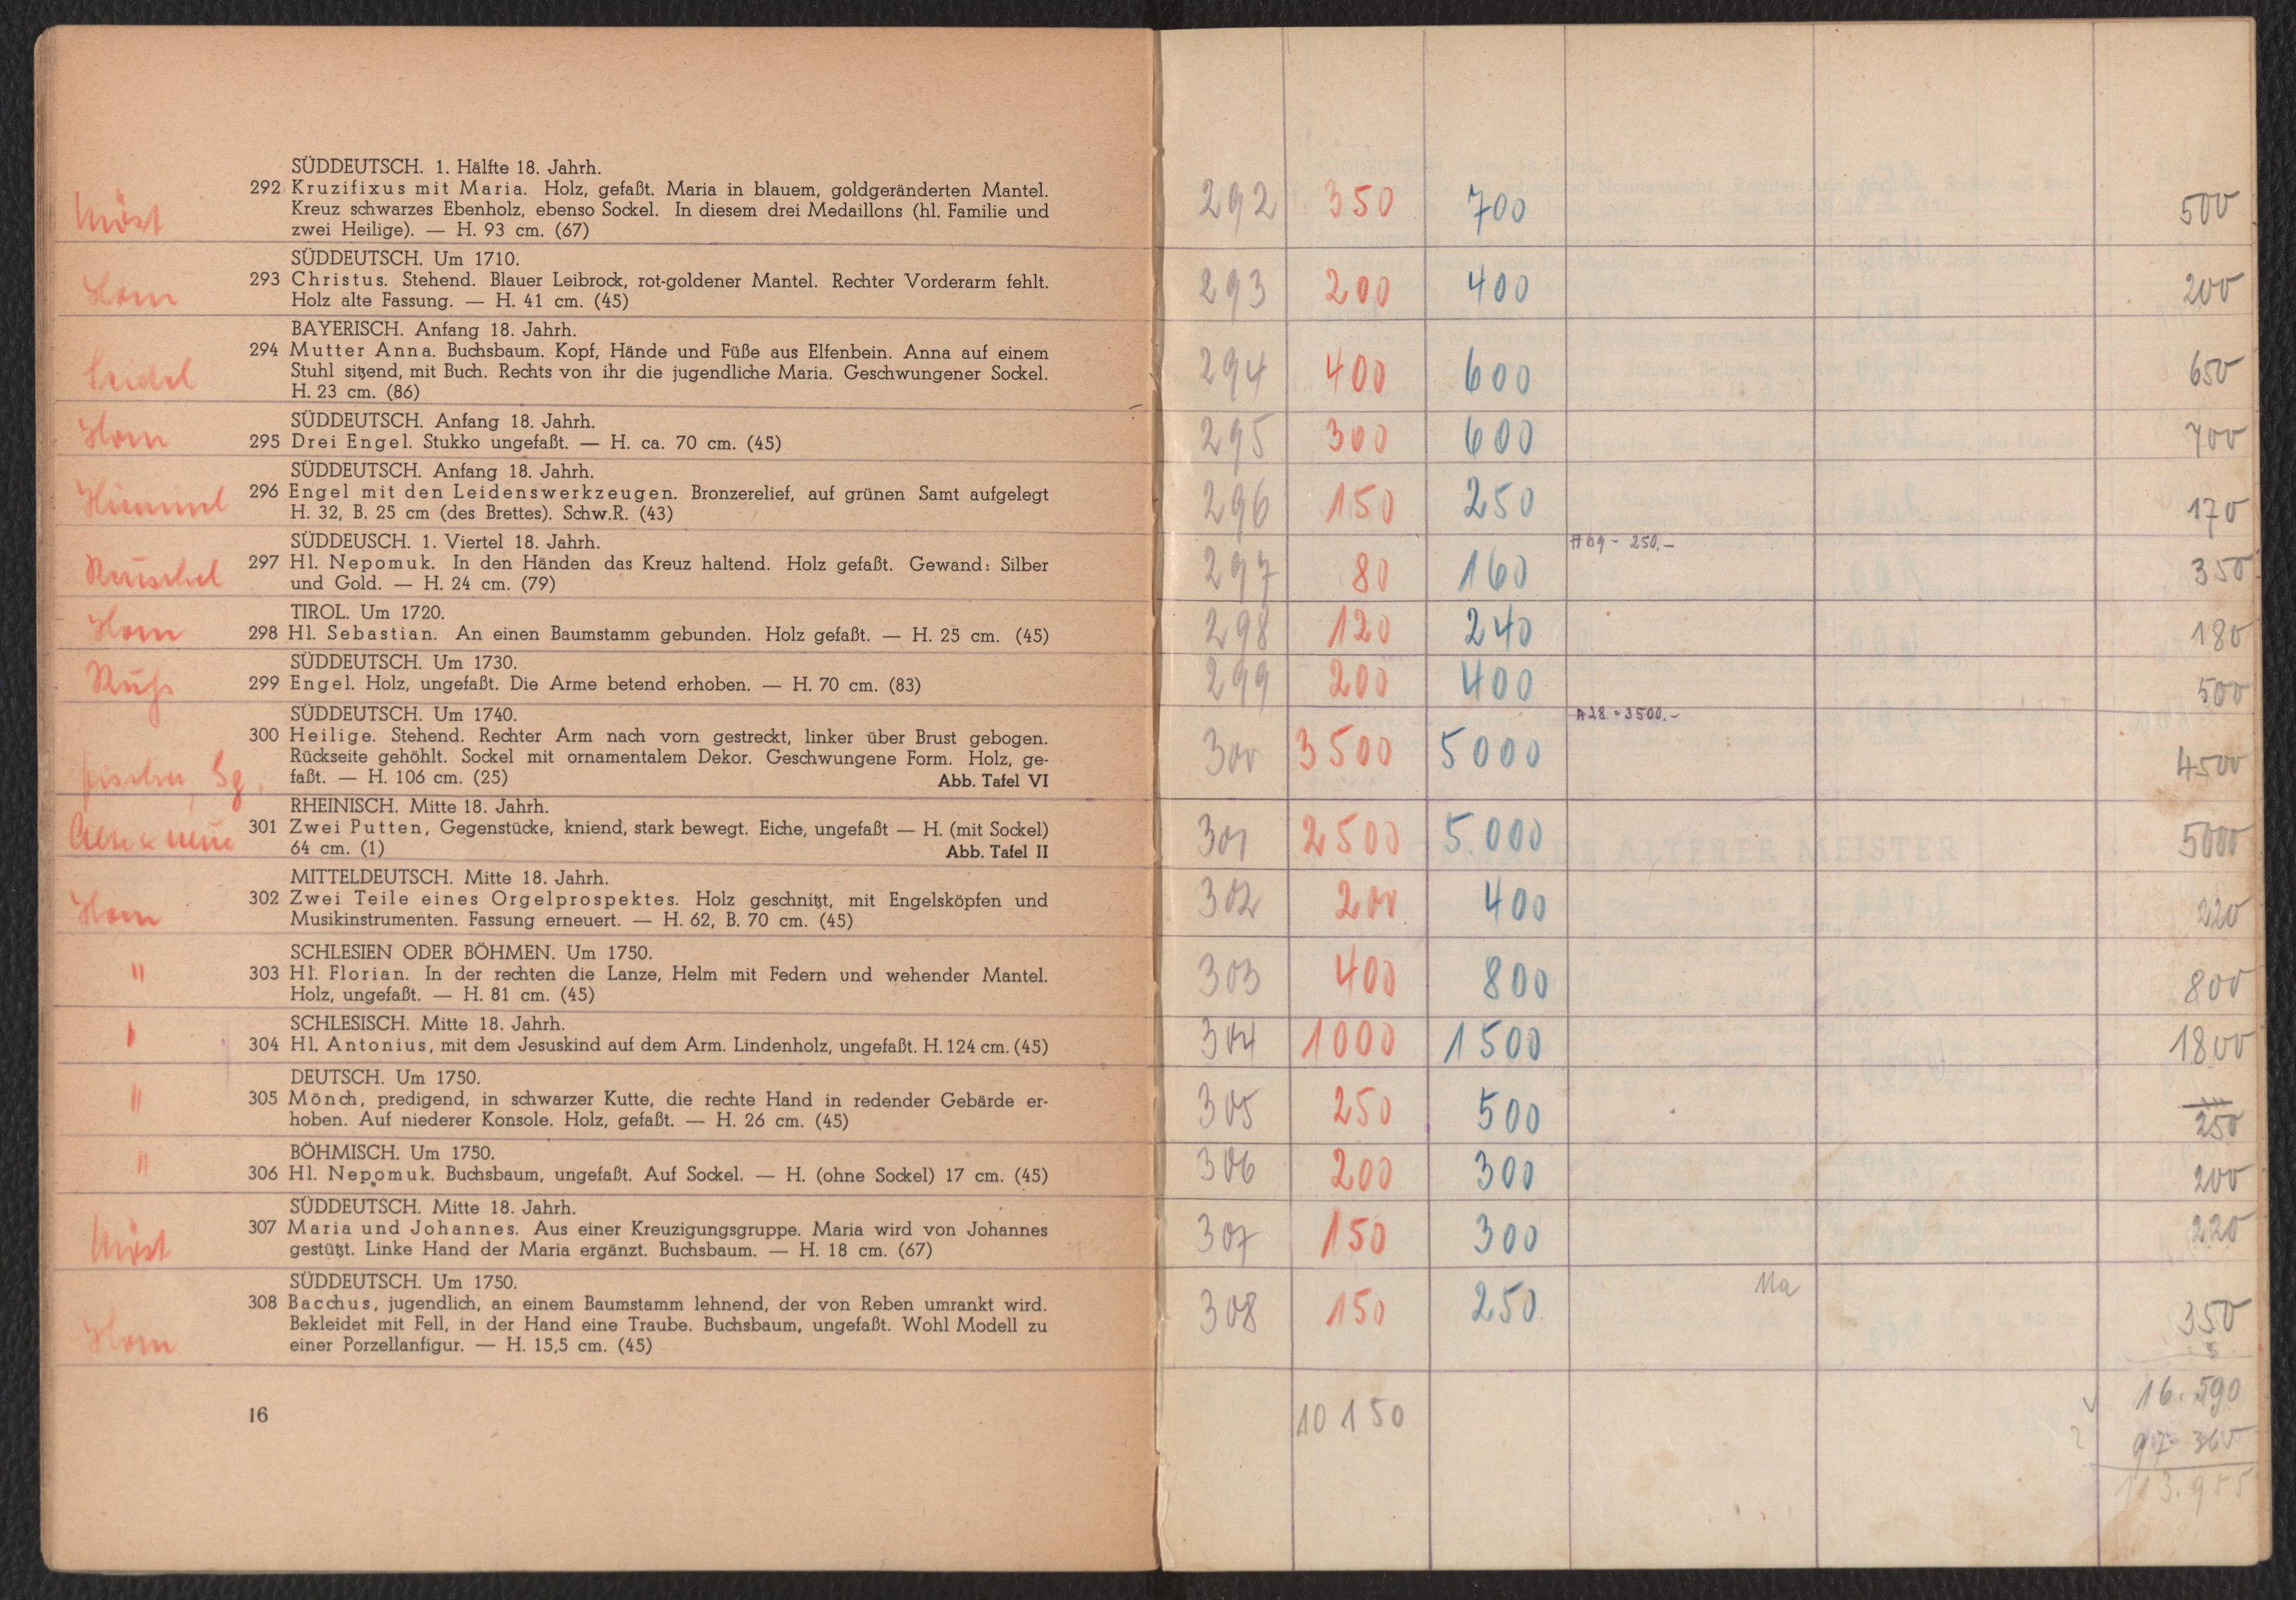 SÜDDEUTSCH. 1. Hälfte 18. Jahrh.
Möst
292 Kruzifixus mit Maria. Holz, gefaßt. Maria in blauem, goldgeränderten Mantel.
Kreuz schwarzes Ebenholz, ebenso Sockel. In diesem drei Medaillons (hl. Familie und
zwei Heilige). — H. 93 cm. (67)
SÜDDEUTSCH. Um 1710.
Horn
293 Christus. Stehend. Blauer Leibrock, rot-goldener Mantel. Rechter Vorderarm fehlt.
Holz alte Fassung. — H. 41 cm. (45)
BAYERISCH. Anfang 18. Jahrh.
Seidel
294 Mutter Anna. Buchsbaum. Kopf, Hände und Füße aus Elfenbein. Anna auf einem
Stuhl sitzend, mit Buch. Rechts von ihr die jugendliche Maria. Geschwungener Sockel.
H. 23 cm. (86)
SÜDDEUTSCH. Anfang 18. Jahrh.
Horn
295 Drei Engel. Stukko ungefaßt. — H. ca. 70 cm. (45)
SÜDDEUTSCH. Anfang 18. Jahrh.
Himmel
296 Engel mit den Leidenswerkzeugen. Bronzerelief, auf grünen Samt aufgelegt
H. 32, B. 25 cm (des Brettes). Schw.R. (43)
SÜDDEUSCH. 1. Viertel 18. Jahrh.
297 Hl. Nepomuk. In den Händen das Kreuz haltend. Holz gefaßt. Gewand: Silber
und Gold. — H. 24 cm. (79)
TIROL. Um 1720.
Horn
298 Hl. Sebastian. An einen Baumstamm gebunden. Holz gefaßt. — H. 25 cm. (45)
SÜDDEUTSCH. Um 1730.
299 Engel. Holz, ungefaßt. Die Arme betend erhoben. — H. 70 cm. (83)
SÜDDEUTSCH. Um 1740.
300 Heilige. Stehend. Rechter Arm nach vorn gestreckt, linker über Brust gebogen.
Rückseite gehöhlt. Sockel mit ornamentalem Dekor. Geschwungene Form. Holz, ge-
faßt. — H. 106 cm. (25) Abb. Tafel VI
Fischer, Sg.
RHEINISCH. Mitte 18. Jahrh.
301 Zwei Putten, Gegenstücke, kniend, stark bewegt. Eiche, ungefaßt — H. (mit Sockel)
64 cm. (1) Abb. Tafel II
MITTELDEUTSCH. Mitte 18. Jahrh.
Horn
302 Zwei Teile eines Orgelprospektes. Holz geschnitzt, mit Engelsköpfen und
Musikinstrumenten. Fassung erneuert. — H. 62, B. 70 cm. (45)
SCHLESIEN ODER BÖHMEN. Um 1750.
"
303 Hl. Florian. In der rechten die Lanze, Helm mit Federn und wehender Mantel.
Holz, ungefaßt. — H. 81 cm. (45)
SCHLESISCH. Mitte 18. Jahrh.
"
304 Hl. Antonius, mit dem Jesuskind auf dem Arm. Lindenholz, ungefaßt. H. 124 cm. (45)
DEUTSCH. Um 1750.
"
305 Mönch, predigend, in schwarzer Kutte, die rechte Hand in redender Gebärde er-
hoben. Auf niederer Konsole. Holz, gefaßt. — H. 26 cm. (45)
BÖHMISCH. Um 1750.
"
306 Hl. Nepomuk. Buchsbaum, ungefaßt. Auf Sockel. — H. (ohne Sockel) 17 cm. (45)
SÜDDEUTSCH. Mitte 18. Jahrh.
Möst
307 Maria und Johannes. Aus einer Kreuzigungsgruppe. Maria wird von Johannes
gestützt. Linke Hand der Maria ergänzt. Buchsbaum. — H. 18 cm. (67)
SÜDDEUTSCH. Um 1750.
Horn
308 Bacchus, jugendlich, an einem Baumstamm lehnend, der von Reben umrankt wird.
Bekleidet mit Fell, in der Hand eine Traube. Buchsbaum, ungefaßt. Wohl Modell zu
einer Porzellanfigur. — H. 15,5 cm. (45)
16
292 350 700 500
293 200 400 200
294 400 600 650
295 300 600 700
296 150 250 170
A 69 - 250.-
297 80 160 350
298 120 240 180
299 200 400 500
A 28 = 3500.-
300 3500 5000 4500
301 2500 5.000 5000
302 200 400 220
303 400 800 800
304 1000 1500 1800
305 250 500 250
306 200 300 200
307 150 300 220
308 150 250 350
10 150 16.590
113.955